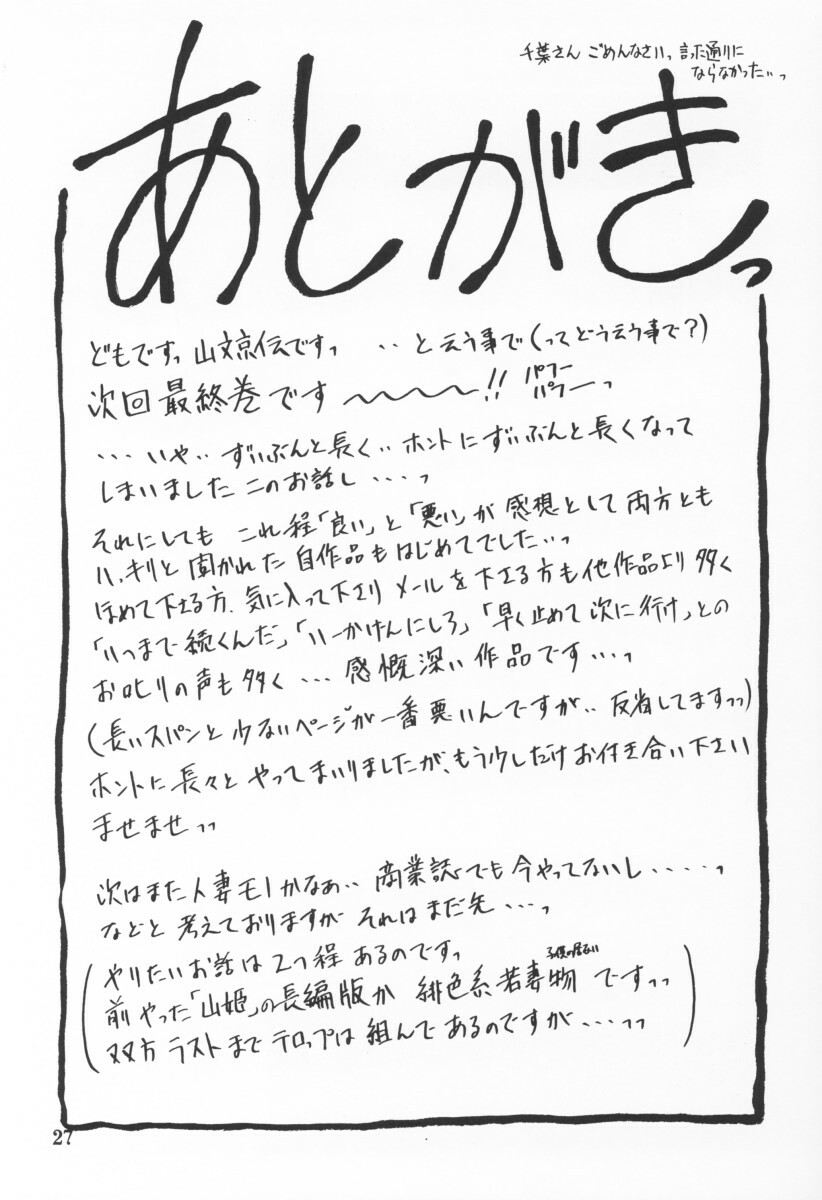 千葉さん ごめんなさいっ 言った通りに
ならなかった…っ
あとがきっ
どもですっ 山文京伝ですっ ‥と云う事で(ってどう云う事で?)
次回最終巻です〜〜〜〜!! パフー パフーっ
‥‥いや‥ずいぶんと長く‥ホントにずいぶんと長くなって
しまいましたこのお話し‥‥っ
それにしても これ程「良い」と「悪い」が感想として両方とも
ハッキリと聞かれた自作品もはじめてでした…っ
ほめて下さる方、気に入って下さりメールを下さる方も他作品より多く
「いつまで続くんだ」「いーかげんにしろ」「早く止めて次に行け」との
お叱りの声も多く…感慨深い作品です…っ
(長いスパンと少ないページが一番悪いんですが‥反省してますっっ)
ホントに長々とやってまいりましたが、もう少しだけお付き合い下さい
ませませっっ
次はまた人妻モノかなぁ‥商業誌でも今やってないし‥‥‥っ
などと考えておりますがそれはまだ先…っ
(やりたいお話は2つ程あるのですっ
前やった「山姫」の長編版か 緋色系若妻物ですっっ
双方ラストまでテロップは組んであるのですが…っっ)
27